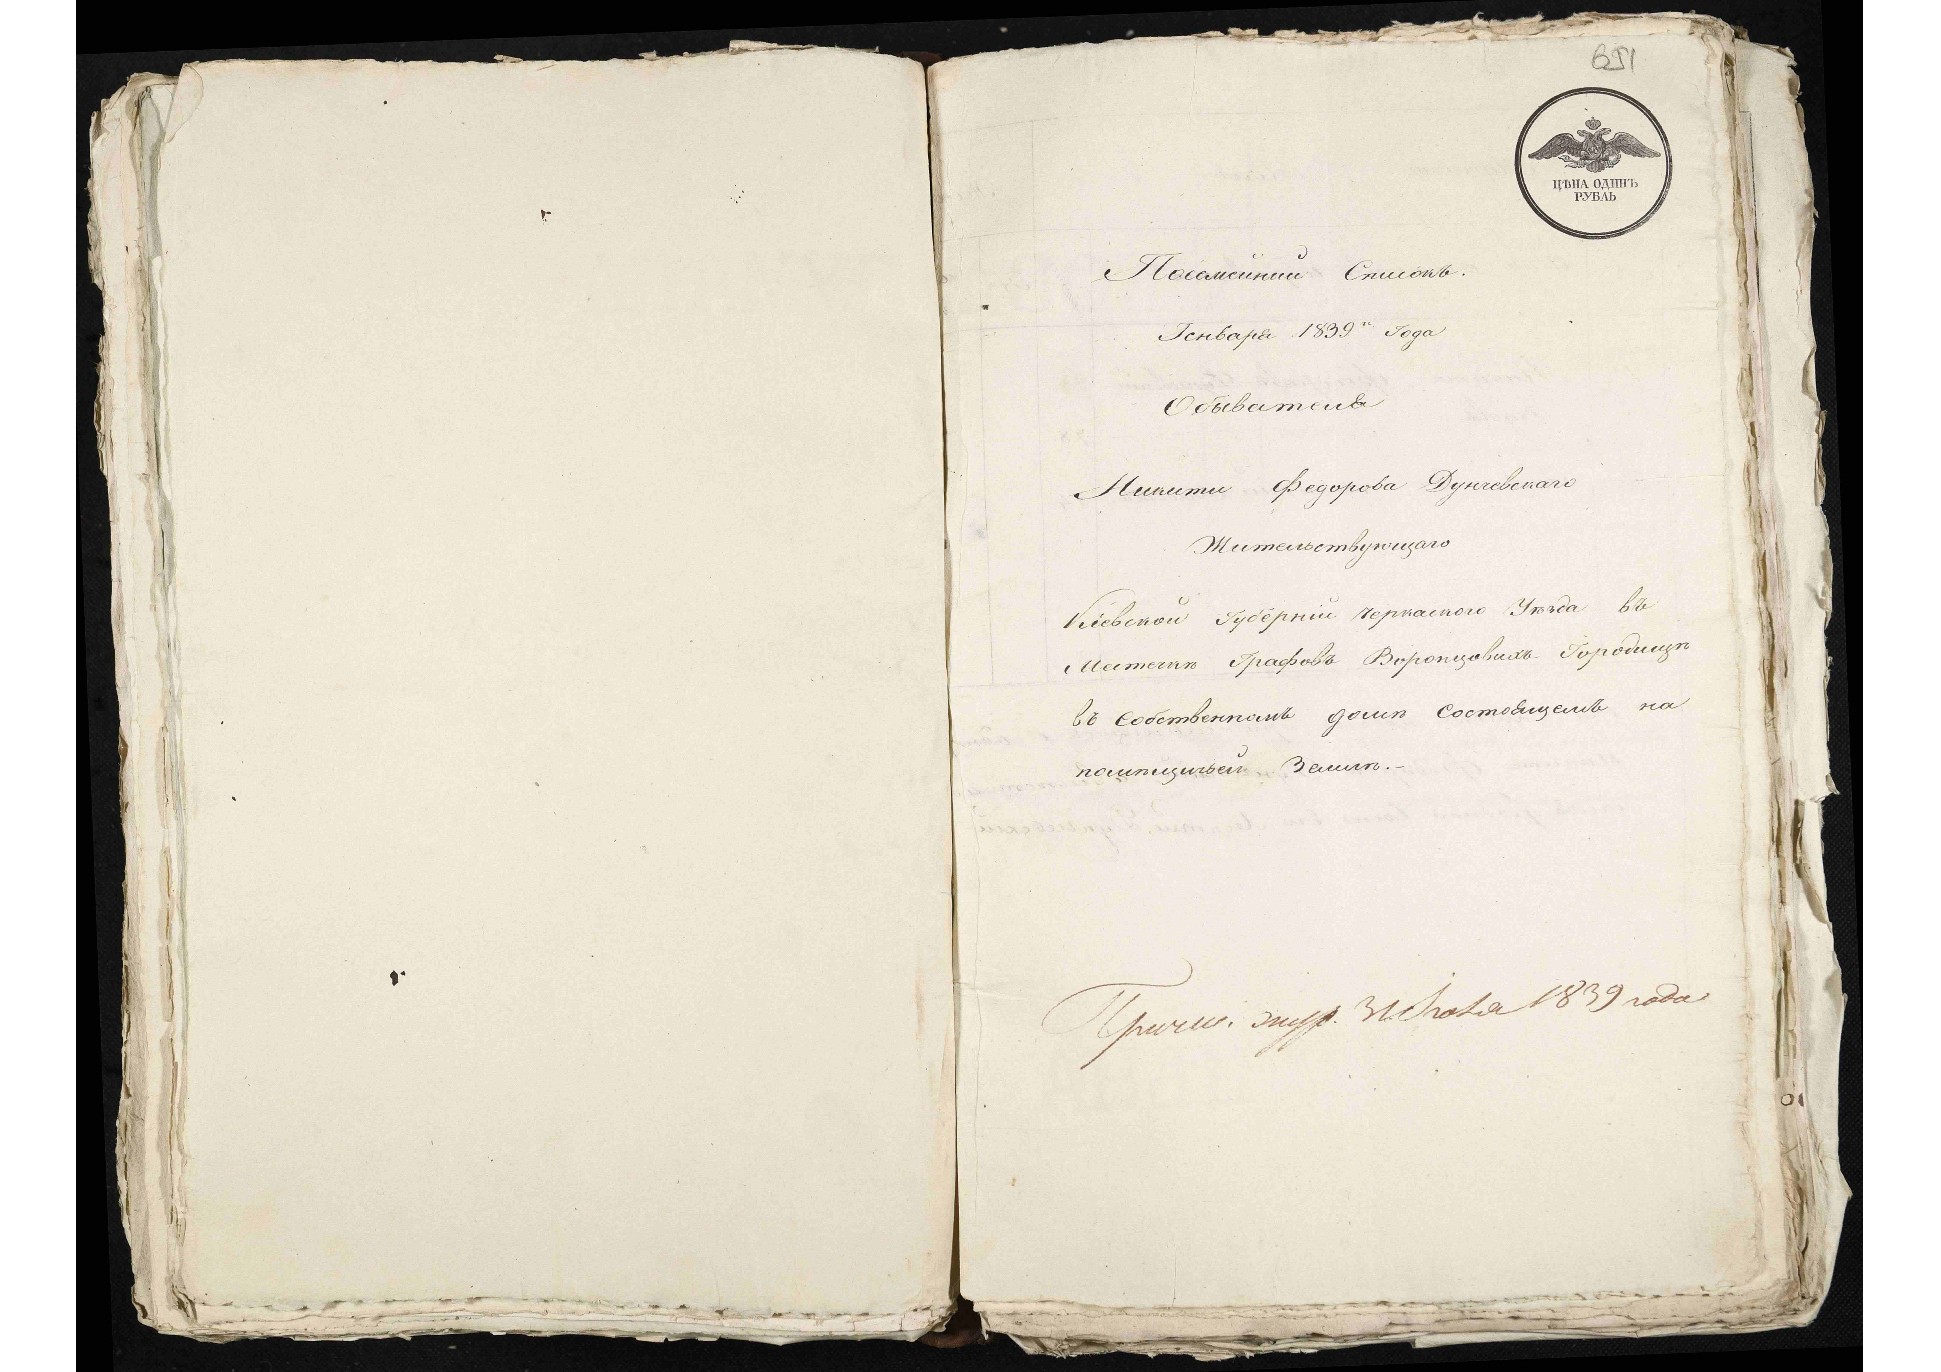 651
ЦѢНА ОДИНЪ
РУБЛЬ
Посемейний Списокъ.
Генваря 1839го Года
Обывателя
Никити Федорова Дунчевскаго
Жительствующаго
Кіевской Губерніи Черкаского Уезда въ
Местечкѣ Графовъ Воронцовихъ Городищѣ
въ Собственномъ домѣ состоящемъ на
помѣщичьей Землѣ.–
31 1839 года